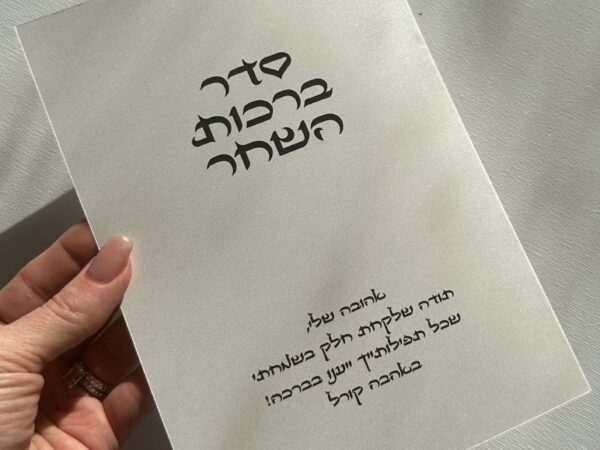 סדר
ברכות
השחר
אהובה שלי,
תודה שלקחת חלק בשמחתי
שכל תפילותייך ייענו בברכה!
באהבה קורל